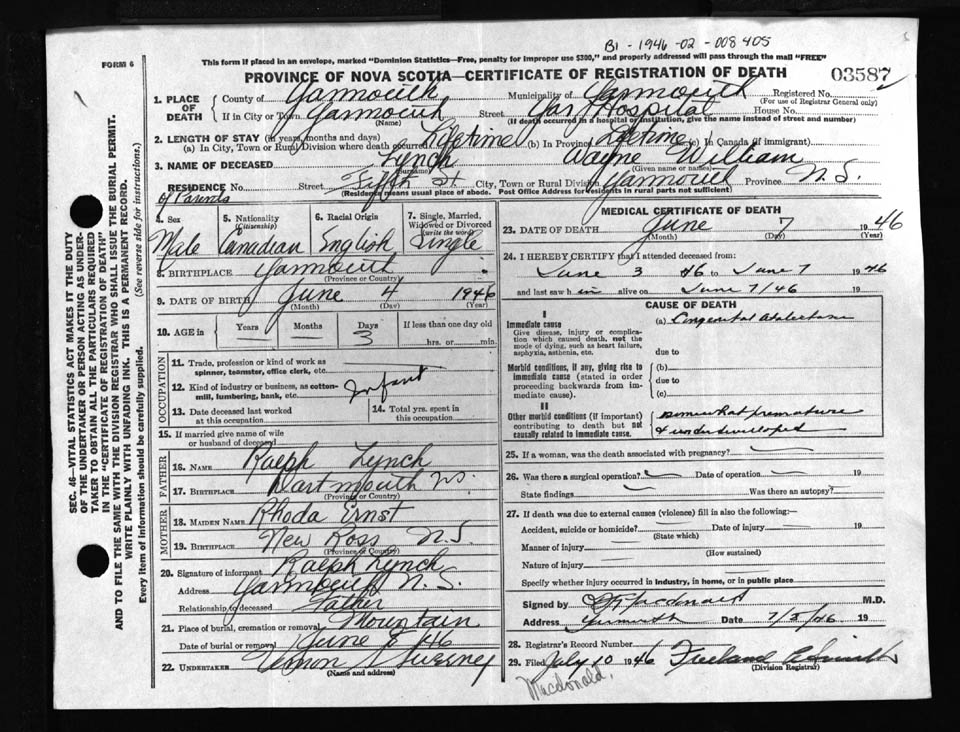 B1 - 1946 - 02 - 008405
This form if placed in an envelope, marked "Dominion Statistics—Free, penalty for improper use $300," and properly addressed will pass through the mail "FREE"
FORM 6
PROVINCE OF NOVA SCOTIA—CERTIFICATE OF REGISTRATION OF DEATH
03587
1. PLACE OF DEATH
County of Yarmouth Municipality of Yarmouth Registered No.
(For use of Registrar General only)
If in City or Town Yarmouth Street Yar Hospital House No.
(Name) (If death occurred in a hospital or institution, give the name instead of street and number)
2. LENGTH OF STAY (in years, months and days)
(a) In City, Town or Rural Division where death occurred Lifetime (b) In Province Lifetime (c) In Canada (if immigrant)
3. NAME OF DECEASED Lynch Wayne William
(Surname) (Given name or names)
RESIDENCE No. Street Fifth St City, Town or Rural Division Yarmouth Province N.S.
of Parents
(Residence means usual place of abode. Post Office Address for residents in rural parts not sufficient)
4. Sex
Male
5. Nationality (Citizenship)
Canadian
6. Racial Origin
English
7. Single, Married, Widowed or Divorced (write the word)
Single
8. BIRTHPLACE Yarmouth
(Province or Country)
9. DATE OF BIRTH June 4 1946
(Month) (Day) (Year)
10. AGE in
Years Months Days If less than one day old
— — 3 hrs. or min.
OCCUPATION
11. Trade, profession or kind of work as spinner, teamster, office clerk, etc.
12. Kind of industry or business, as cotton-mill, lumbering, bank, etc.
Infant
13. Date deceased last worked at this occupation
14. Total yrs. spent in this occupation
15. If married give name of wife or husband of deceased
FATHER
16. NAME Ralph Lynch
17. BIRTHPLACE Dartmouth N.S.
(Province or Country)
MOTHER
18. MAIDEN NAME Rhoda Ernst
19. BIRTHPLACE New Ross N.S.
(Province or Country)
20. Signature of informant Ralph Lynch
Address Yarmouth N.S.
Relationship to deceased Father
21. Place of burial, cremation or removal Mountain
Date of burial or removal June 8 46
22. UNDERTAKER Vernon Sweeney
(Name and address)
MEDICAL CERTIFICATE OF DEATH
23. DATE OF DEATH June 7 1946
(Month) (Day) (Year)
24. I HEREBY CERTIFY that I attended deceased from:
June 3 46 to June 7 1946
and last saw him alive on June 7/46 19
CAUSE OF DEATH
I
Immediate cause
Give disease, injury or complication which caused death, not the mode of dying, such as heart failure, asphyxia, asthenia, etc.
(a) Congenital Atelectasis
due to
Morbid conditions, if any, giving rise to immediate cause (stated in order proceeding backwards from immediate cause).
(b)
due to
(c)
II
Other morbid conditions (if important) contributing to death but not causally related to immediate cause.
Somewhat premature
& underdeveloped
25. If a woman, was the death associated with pregnancy?
26. Was there a surgical operation? Date of operation 19
State findings Was there an autopsy?
27. If death was due to external causes (violence) fill in also the following:—
Accident, suicide or homicide? Date of injury 19
(State which)
Manner of injury
(How sustained)
Nature of injury
Specify whether injury occurred in industry, in home, or in public place
Signed by Macdonald M.D.
Address Yarmouth Date 7/5/46 19
28. Registrar's Record Number
29. Filed July 10 1946 Freeland Smith
(Division Registrar)
Macdonald.
SEC. 46—VITAL STATISTICS ACT MAKES IT THE DUTY
OF THE UNDERTAKER OR PERSON ACTING AS UNDER-
TAKER TO OBTAIN ALL THE PARTICULARS REQUIRED
IN THE "CERTIFICATE OF REGISTRATION OF DEATH"
AND TO FILE THE SAME WITH THE DIVISION REGISTRAR WHO SHALL ISSUE THE BURIAL PERMIT.
WRITE PLAINLY WITH UNFADING INK. THIS IS A PERMANENT RECORD.
Every item of information should be carefully supplied. (See reverse side for instructions.)